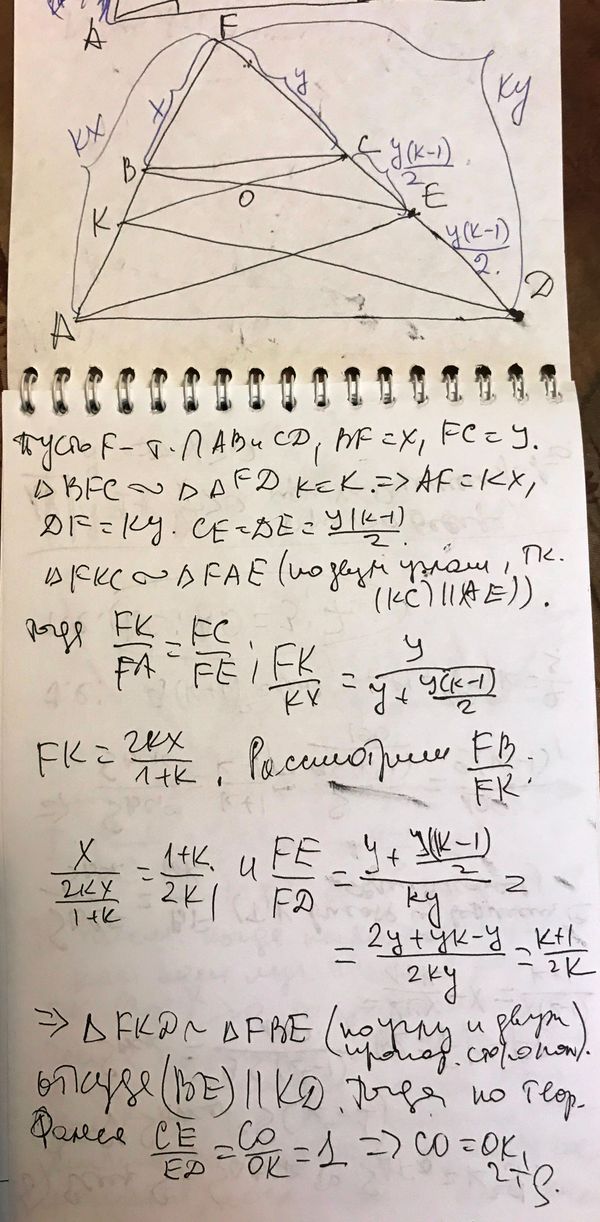 A
F
KX
x
y
Ky
B
C
y(k-1)/2
K
O
E
y(k-1)/2.
A
D
Пусть F – т. ∩ AB и CD, BF = x, FC = y.
Δ BFC ∼ Δ AFD K=K. => AF = KX,
DF = Ky. CE = DE = y(k-1)/2.
Δ FKC ∼ Δ FAE (по двум углам, т.к.
(KC) || (AE)).
Тогда FK/FA = FC/FE; FK/KX = y/(y + y(k-1)/2)
FK = 2KX/(1+K). Рассмотрим FB/FK:
X/(2KX/(1+K)) = (1+K)/2K, и FE/FD = (y + y(k-1)/2)/ky =
= (2y + yk - y)/2ky = (k+1)/2k
=> Δ FKD ∼ Δ FBE (по углу и двум
пропорц. сторонам).
откуда (BE) || KD. Тогда по теор.
Фалеса CE/ED = CO/OK = 1 => CO = OK,
чтд.